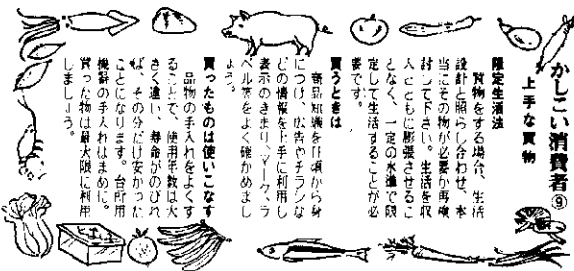 かしこい消費者⑨
上手な買物
限定生活法
買物をする場合、生活
設計と照らし合わせ、本
当にその物が必要か再検
討して下さい。生活を収
入とともに膨張させるこ
となく、一定の水準で限
定して生活することが必
要です。
買うときは
商品知識を日頃から身
につけ、広告やチラシな
どの情報を上手に利用し
表示のきまり、マーク、ラ
ベル等をよく確かめまし
ょう。
買ったものは使いこなす
品物の手入れをよくす
ることで、使用年数は大
きく違い、寿命がのびれ
ば、その分だけ安かった
ことになります。台所用
機器の手入れはまめに。
買った物は最大限に利用
しましょう。